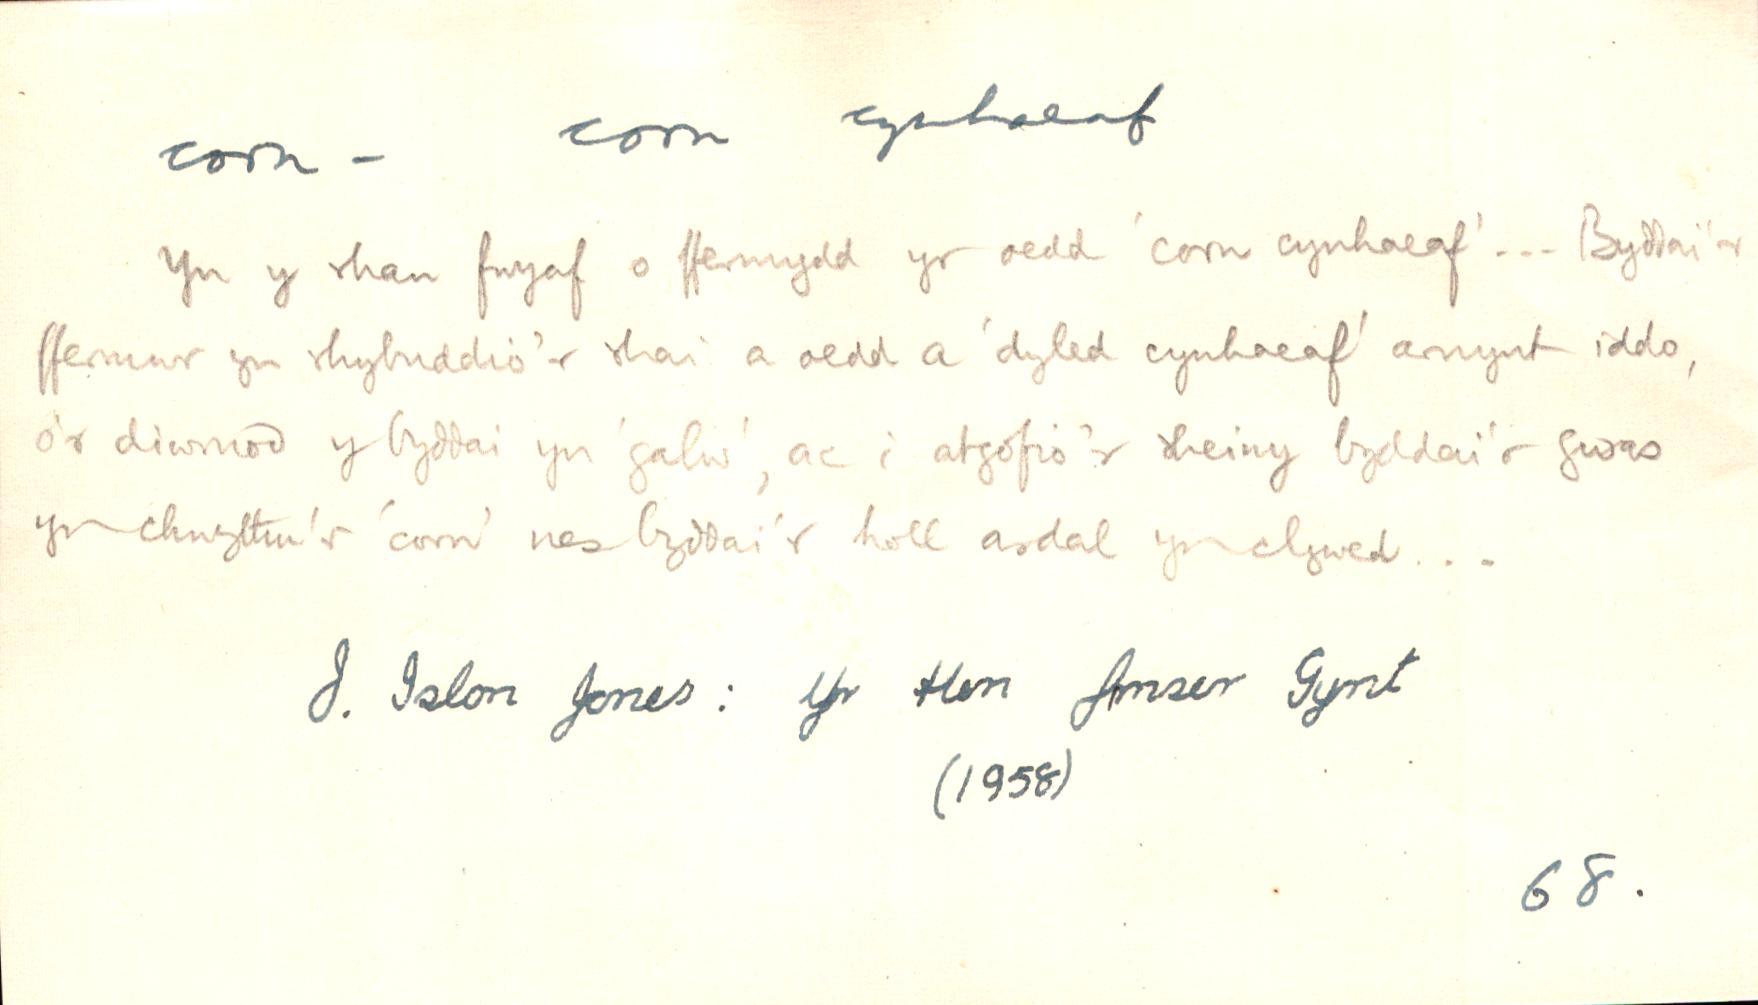 corn - corn cynhaeaf
Yn y rhan fwyaf o ffermydd yr oedd 'corn cynhaeaf' ... Byððai'r
ffermwr yn rhybuddio'r rhai a oedd a 'dyled cynhaeaf' arnynt iddo,
o'r diwrnoð y byððai yn 'galw', ac i atgofio'r rheiny byddai'r gwas
yn chwythu'r 'corn' nes byððai'r holl ardal yn clywed ...
J. Islon Jones: Yr Hen Amser Gynt
(1958)
68.